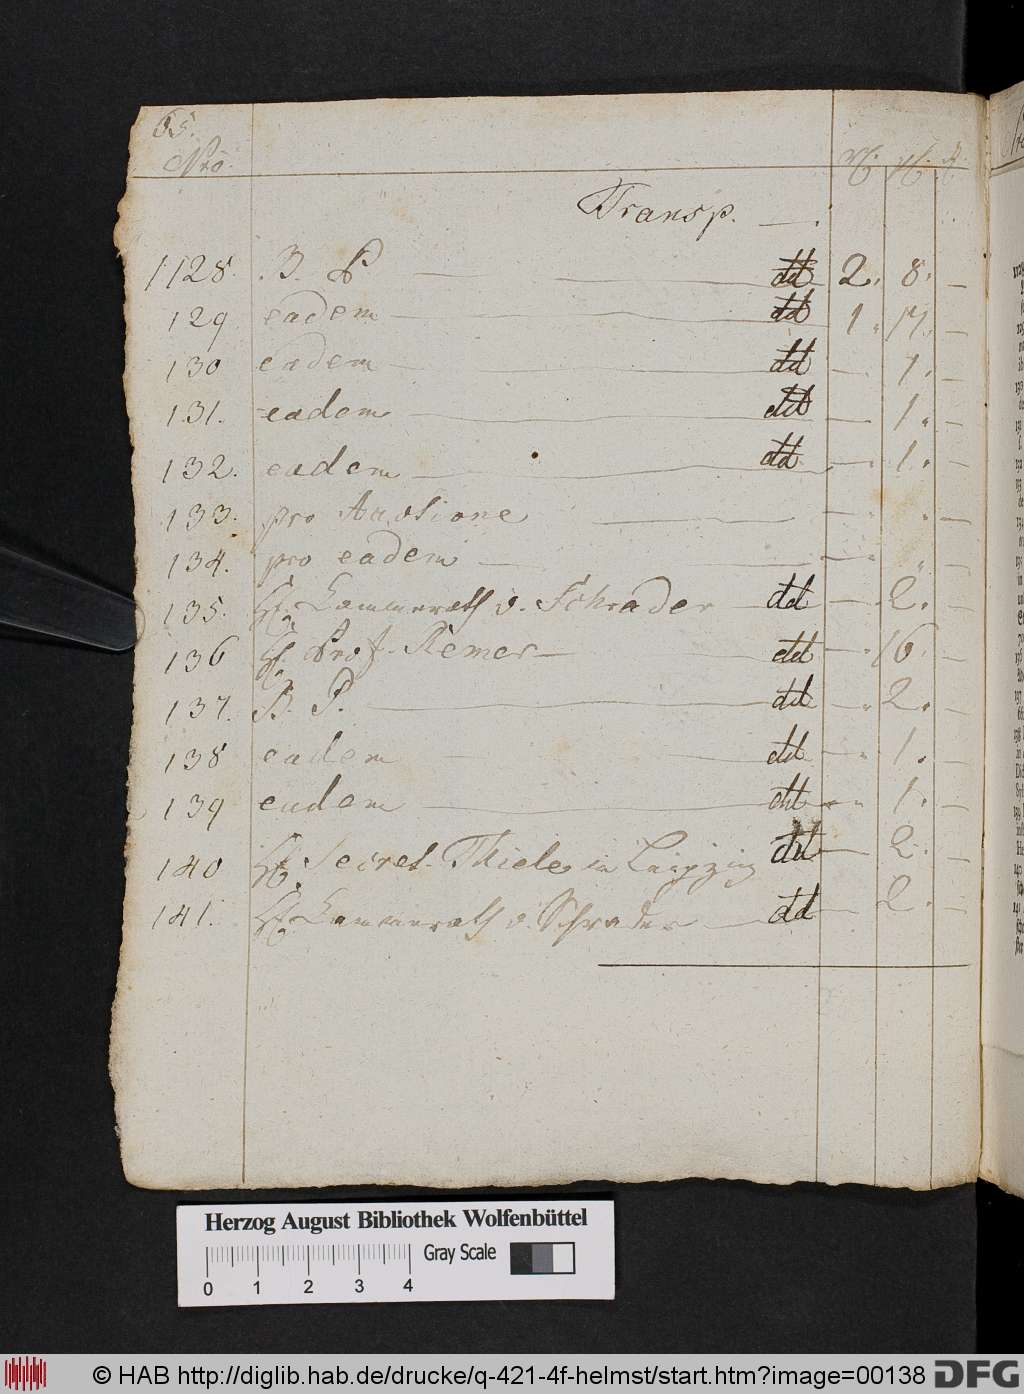 65.
Nro.
Transp. —
1128. B. P — dd 2. 8. —
129 eadem — dd 1. 17. —
130 eadem — dd — 1. —
131. eadem — dd — 1. —
132. eadem — dd — 1. —
133. pro Auctione — — . —
134. pro eadem — — „ —
135. H. Kammerath v. Schrader — dd — 2. —
136 H. Prof. Remer — dd — 16. —
137. B. P. — dd — 2. —
138 eadem — dd — 1. —
139 eadem — dd — 1. —
140 H. Secret. Thiele in Leipzig dd — 2. —
141. H. Kammerath v. Schrader — dd — 2. —
Herzog August Bibliothek Wolfenbüttel
Gray Scale
0 1 2 3 4
© HAB http://diglib.hab.de/drucke/q-421-4f-helmst/start.htm?image=00138
DFG